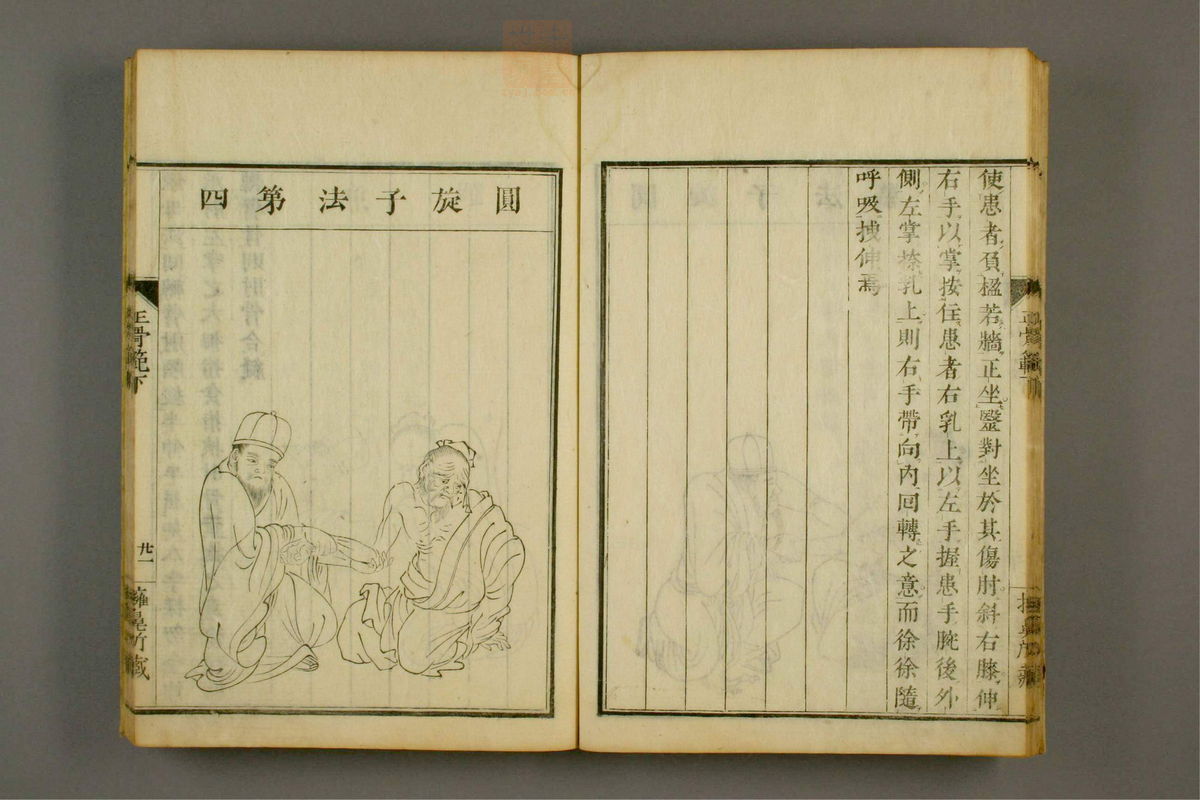 使患者負楹若牆正坐醫對坐於其傷肘斜右膝伸
右手以掌按住患者右乳上以左手握患手腕後外
側左掌捺乳上則右手帶向內回轉之意而徐徐隨
呼吸拽伸焉
圓旋子法第四
正骨範下
廿一